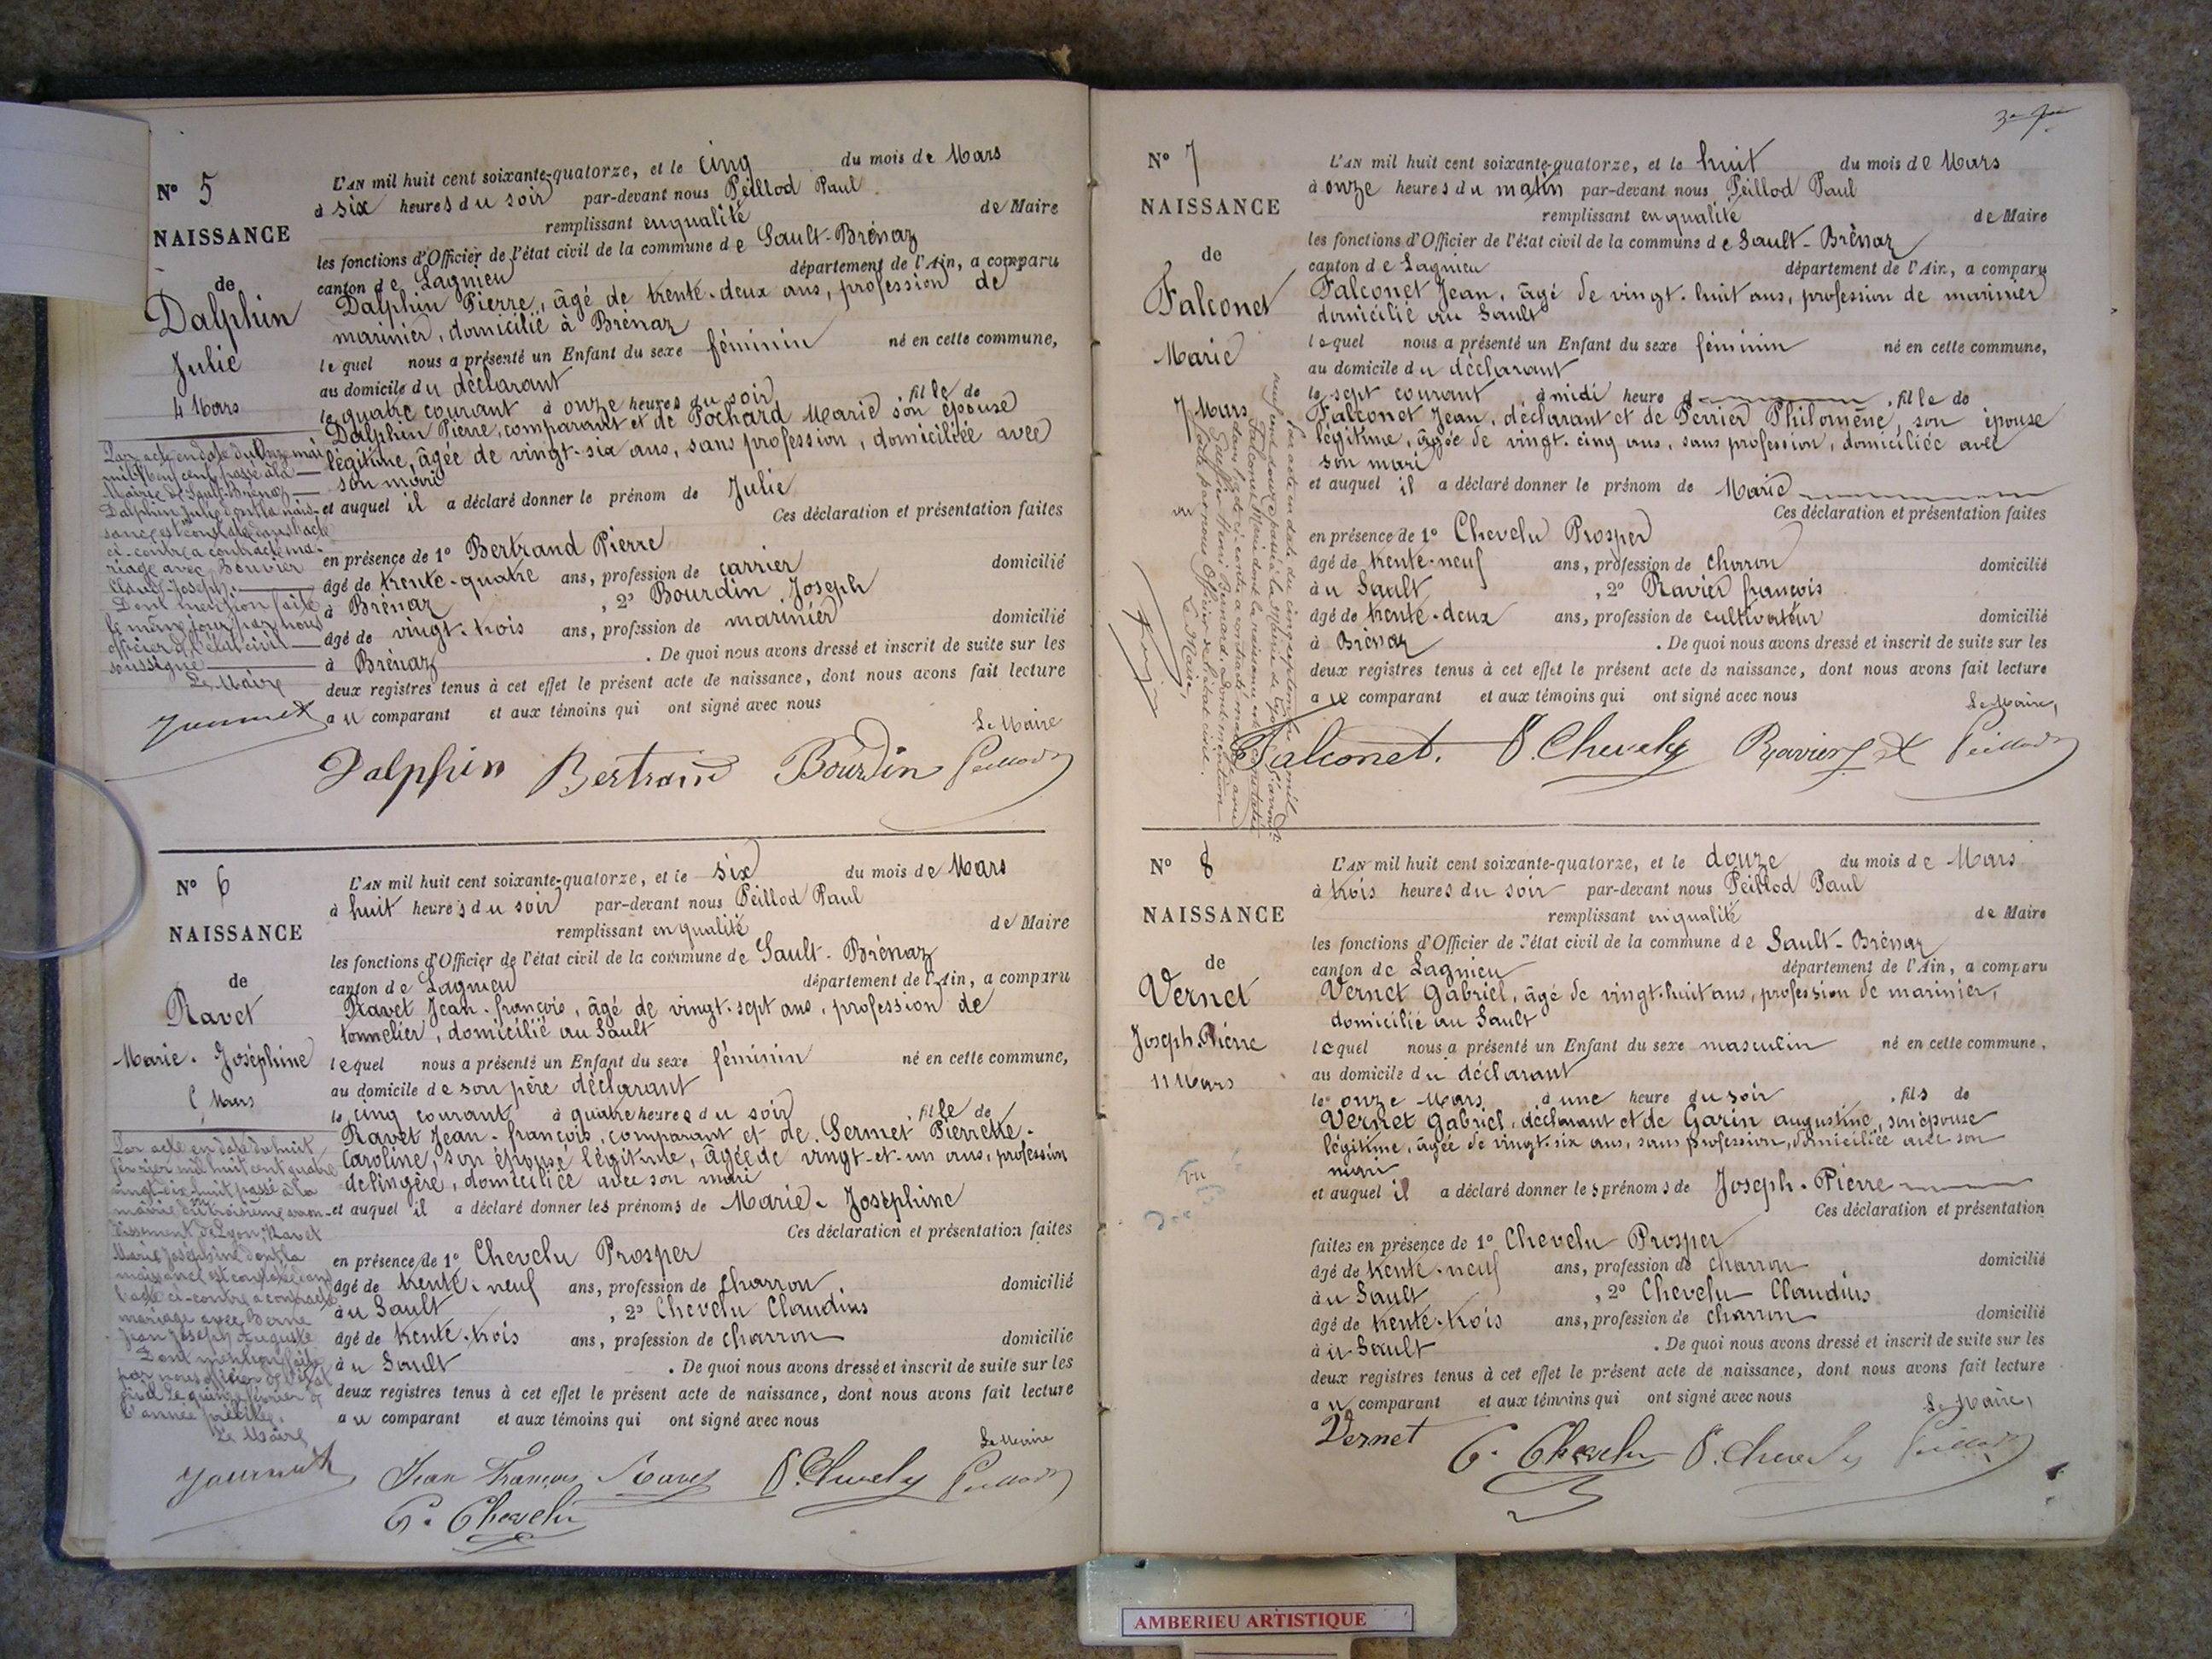 N° 5
NAISSANCE
de
Dalphin
Julie
4 Mars
Par acte en date du onze mai
mil neuf cent passé à la
Mairie de Sault-Brénaz
Dalphin Julie dont la nais-
sance est constatée dans l'acte
ci-contre a contracté ma-
riage avec Bouvier
Claude Joseph.
Dont mention faite
le même jour par nous
officier de l'état civil
soussigné
Le Maire
L'AN mil huit cent soixante-quatorze, et le cinq du mois de Mars
à six heures du soir par-devant nous Peillod Paul
remplissant en qualité de Maire
les fonctions d'Officier de l'état civil de la commune de Sault-Brénaz
canton de Lagnieu département de l'Ain, a comparu
Dalphin Pierre, âgé de trente-deux ans, profession de
marinier, domicilié à Brénaz
lequel nous a présenté un Enfant du sexe féminin né en cette commune,
au domicile du déclarant
le quatre courant à onze heures du soir fille de
Dalphin Pierre, comparant et de Pochard Marie son épouse
légitime, âgée de vingt-six ans, sans profession, domiciliée avec
son mari
et auquel il a déclaré donner le prénom de Julie
Ces déclaration et présentation faites
en présence de 1° Bertrand Pierre
âgé de trente-quatre ans, profession de carrier domicilié
à Brénaz , 2° Bourdin Joseph
âgé de vingt-trois ans, profession de marinier domicilié
à Brénaz . De quoi nous avons dressé et inscrit de suite sur les
deux registres tenus à cet effet le présent acte de naissance, dont nous avons fait lecture
au comparant et aux témoins qui ont signé avec nous
Le Maire
Dalphin Bertrand Bourdin Peillod
N° 6
NAISSANCE
de
Ravet
Marie-Joséphine
Mars
Par acte en date du huit
février mil huit cent quatre
vingt-dix-huit passé à la
mairie du troisième arron-
dissement de Lyon, Ravet
Marie Joséphine dont la
naissance est constatée dans
l'acte ci-contre a contracté
mariage avec Berne
Jean Joseph Auguste
Dont mention faite
par nous officier de l'état
civil le quinze février de
l'année précitée.
Le Maire
L'AN mil huit cent soixante-quatorze, et le six du mois de Mars
à huit heures du soir par-devant nous Peillod Paul
remplissant en qualité de Maire
les fonctions d'Officier de l'état civil de la commune de Sault-Brénaz
canton de Lagnieu département de l'Ain, a comparu
Ravet Jean-françois, âgé de vingt-sept ans, profession de
tonnelier, domicilié au Sault
lequel nous a présenté un Enfant du sexe féminin né en cette commune,
au domicile de son père déclarant
le cinq courant à quatre heures du soir fille de
Ravet Jean-françois, comparant et de Sermet Pierrette-
Caroline, son épouse légitime, âgée de vingt-et-un ans, profession
de lingère, domiciliée avec son mari
et auquel il a déclaré donner les prénoms de Marie-Joséphine
Ces déclaration et présentation faites
en présence de 1° Chevelu Prosper
âgé de trente-neuf ans, profession de charron domicilié
au Sault , 2° Chevelu Claudius
âgé de trente-trois ans, profession de charron domicilié
au Sault . De quoi nous avons dressé et inscrit de suite sur les
deux registres tenus à cet effet le présent acte de naissance, dont nous avons fait lecture
au comparant et aux témoins qui ont signé avec nous
Le Maire
Jean François Ravet P. Chevelu Peillod
C. Chevelu
N° 7
NAISSANCE
de
Falconet
Marie
7 Mars
vu
Par acte en date du cinq septembre mil
neuf cent douze passé à la Mairie de Lyon
Falconet Marie dont la naissance est constatée
dans l'acte ci-contre a contracté mariage avec
Henri Bernard. Dont mention
faite par nous Officier de l'état civil.
Le Maire,
L'AN mil huit cent soixante-quatorze, et le huit du mois de Mars
à onze heures du matin par-devant nous Peillod Paul
remplissant en qualité de Maire
les fonctions d'Officier de l'état civil de la commune de Sault-Brénaz
canton de Lagnieu département de l'Ain, a comparu
Falconet Jean, âgé de vingt-huit ans, profession de marinier
domicilié au Sault
lequel nous a présenté un Enfant du sexe féminin né en cette commune,
au domicile du déclarant
le sept courant à midi heure d , fille de
Falconet Jean, déclarant et de Perrier Philomène, son épouse
légitime, âgée de vingt-cinq ans, sans profession, domiciliée avec
son mari
et auquel il a déclaré donner le prénom de Marie
Ces déclaration et présentation faites
en présence de 1° Chevelu Prosper
âgé de trente-neuf ans, profession de charron domicilié
au Sault , 2° Ravier françois
âgé de trente-deux ans, profession de cultivateur domicilié
à Brénaz . De quoi nous avons dressé et inscrit de suite sur les
deux registres tenus à cet effet le présent acte de naissance, dont nous avons fait lecture
au comparant et aux témoins qui ont signé avec nous
Le Maire,
Falconet. P. Chevelu Ravier Peillod
N° 8
NAISSANCE
de
Vernet
Joseph-Pierre
11 Mars
vu
L'AN mil huit cent soixante-quatorze, et le douze du mois de Mars
à trois heures du soir par-devant nous Peillod Paul
remplissant en qualité de Maire
les fonctions d'Officier de l'état civil de la commune de Sault-Brénaz
canton de Lagnieu département de l'Ain, a comparu
Vernet Gabriel, âgé de vingt-huit ans, profession de marinier,
domicilié au Sault
lequel nous a présenté un Enfant du sexe masculin né en cette commune,
au domicile du déclarant
le onze Mars à une heure du soir , fils de
Vernet Gabriel, déclarant et de Garin augustine, son épouse
légitime, âgée de vingt-six ans, sans profession, domiciliée avec son
mari
et auquel il a déclaré donner les prénoms de Joseph-Pierre
Ces déclaration et présentation
faites en présence de 1° Chevelu Prosper
âgé de trente-neuf ans, profession de charron domicilié
au Sault , 2° Chevelu Claudius
âgé de trente-trois ans, profession de charron domicilié
au Sault . De quoi nous avons dressé et inscrit de suite sur les
deux registres tenus à cet effet le présent acte de naissance, dont nous avons fait lecture
au comparant et aux témoins qui ont signé avec nous
Le Maire,
Vernet C. Chevelu P. Chevelu Peillod
AMBERIEU ARTISTIQUE